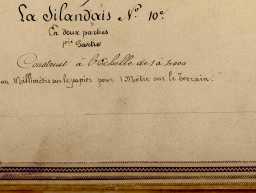 La Silandais N.° 10.e
En deux parties
1ère Partie
Construit à l'Echelle de 1 à
un Millimètre sur le papier pour 1 Mètre sur le terrain.